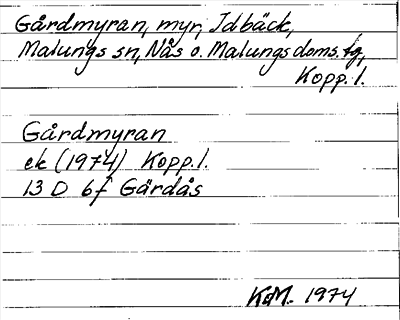 Gårdmyran, myr, Idbäck,
Malungs sn, Nås o. Malungs doms. tg,
Kopp. l.
Gårdmyran
ek (1974) Kopp. l.
13 D 6f Gärdås
KdM. 1974